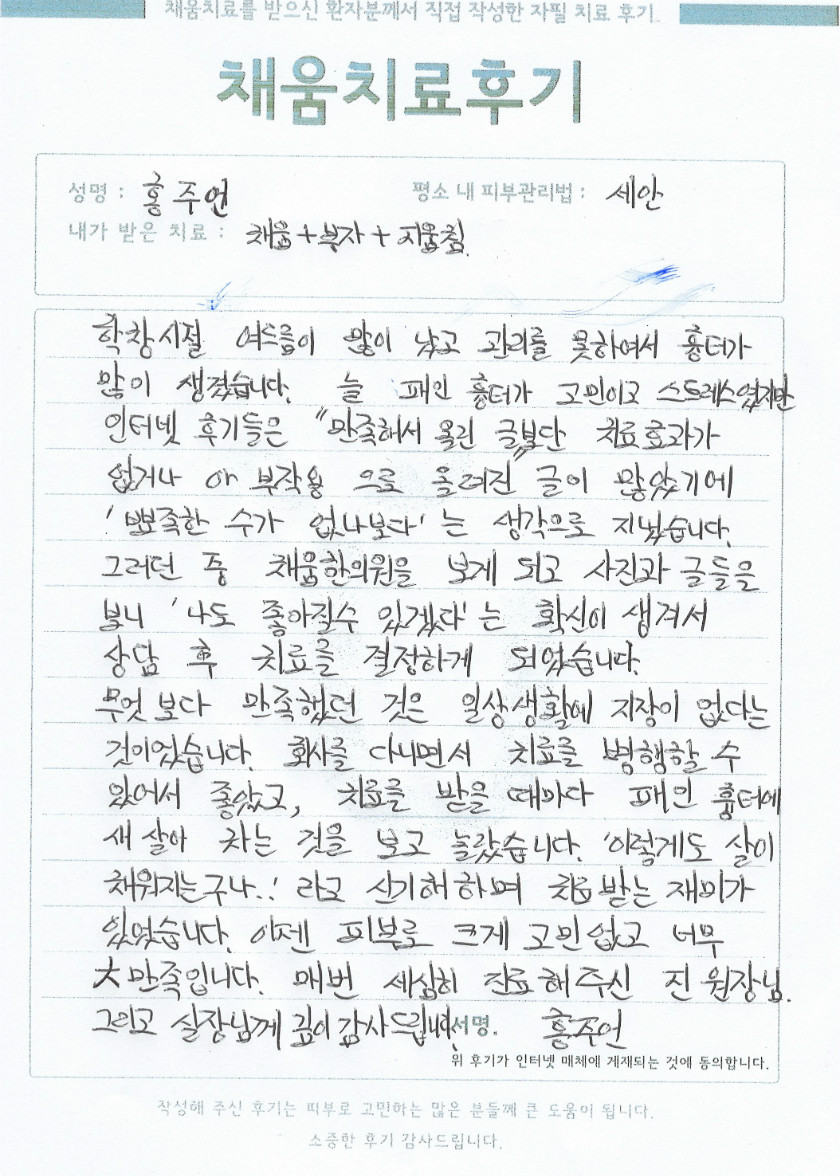 채움치료를 받으신 환자분께서 직접 작성한 자필 치료 후기.
채움치료후기
성명 : 홍주언 평소 내 피부관리법 : 세안
내가 받은 치료 : 채움+부자+지움침
학창시절 여드름이 많이 났고 관리를 못하여서 흉터가
많이 생겼습니다. 늘 패인 흉터가 고민이고 스트레스였지만
인터넷 후기들은 "만족해서 올린 글보단 치료효과가
없거나 or 부작용 으로 올려진" 글이 많았기에
'뾰족한 수가 없나보다' 는 생각으로 지냈습니다.
그러던 중 채움한의원을 보게 되고 사진과 글들을
보니 '나도 좋아질수 있겠다' 는 확신이 생겨서
상담 후 치료를 결정하게 되었습니다.
무엇 보다 만족했던 것은 일상생활에 지장이 없다는
것이었습니다. 회사를 다니면서 치료를 병행할 수
있어서 좋았고, 치료를 받을 때마다 패인 흉터에
새 살아 차는 것을 보고 놀랐습니다. '이렇게도 살이
채워지는구나..! 라고 신기해 하며 치료 받는 재미가
있었습니다. 이젠 피부로 크게 고민없고 너무
大만족입니다. 매번 세심히 진료해주신 진 원장님.
그리고 실장님께 깊이 감사드립니다. 서명. 홍주언
위 후기가 인터넷 매체에 게재되는 것에 동의합니다.
작성해 주신 후기는 피부로 고민하는 많은 분들께 큰 도움이 됩니다.
소중한 후기 감사드립니다.